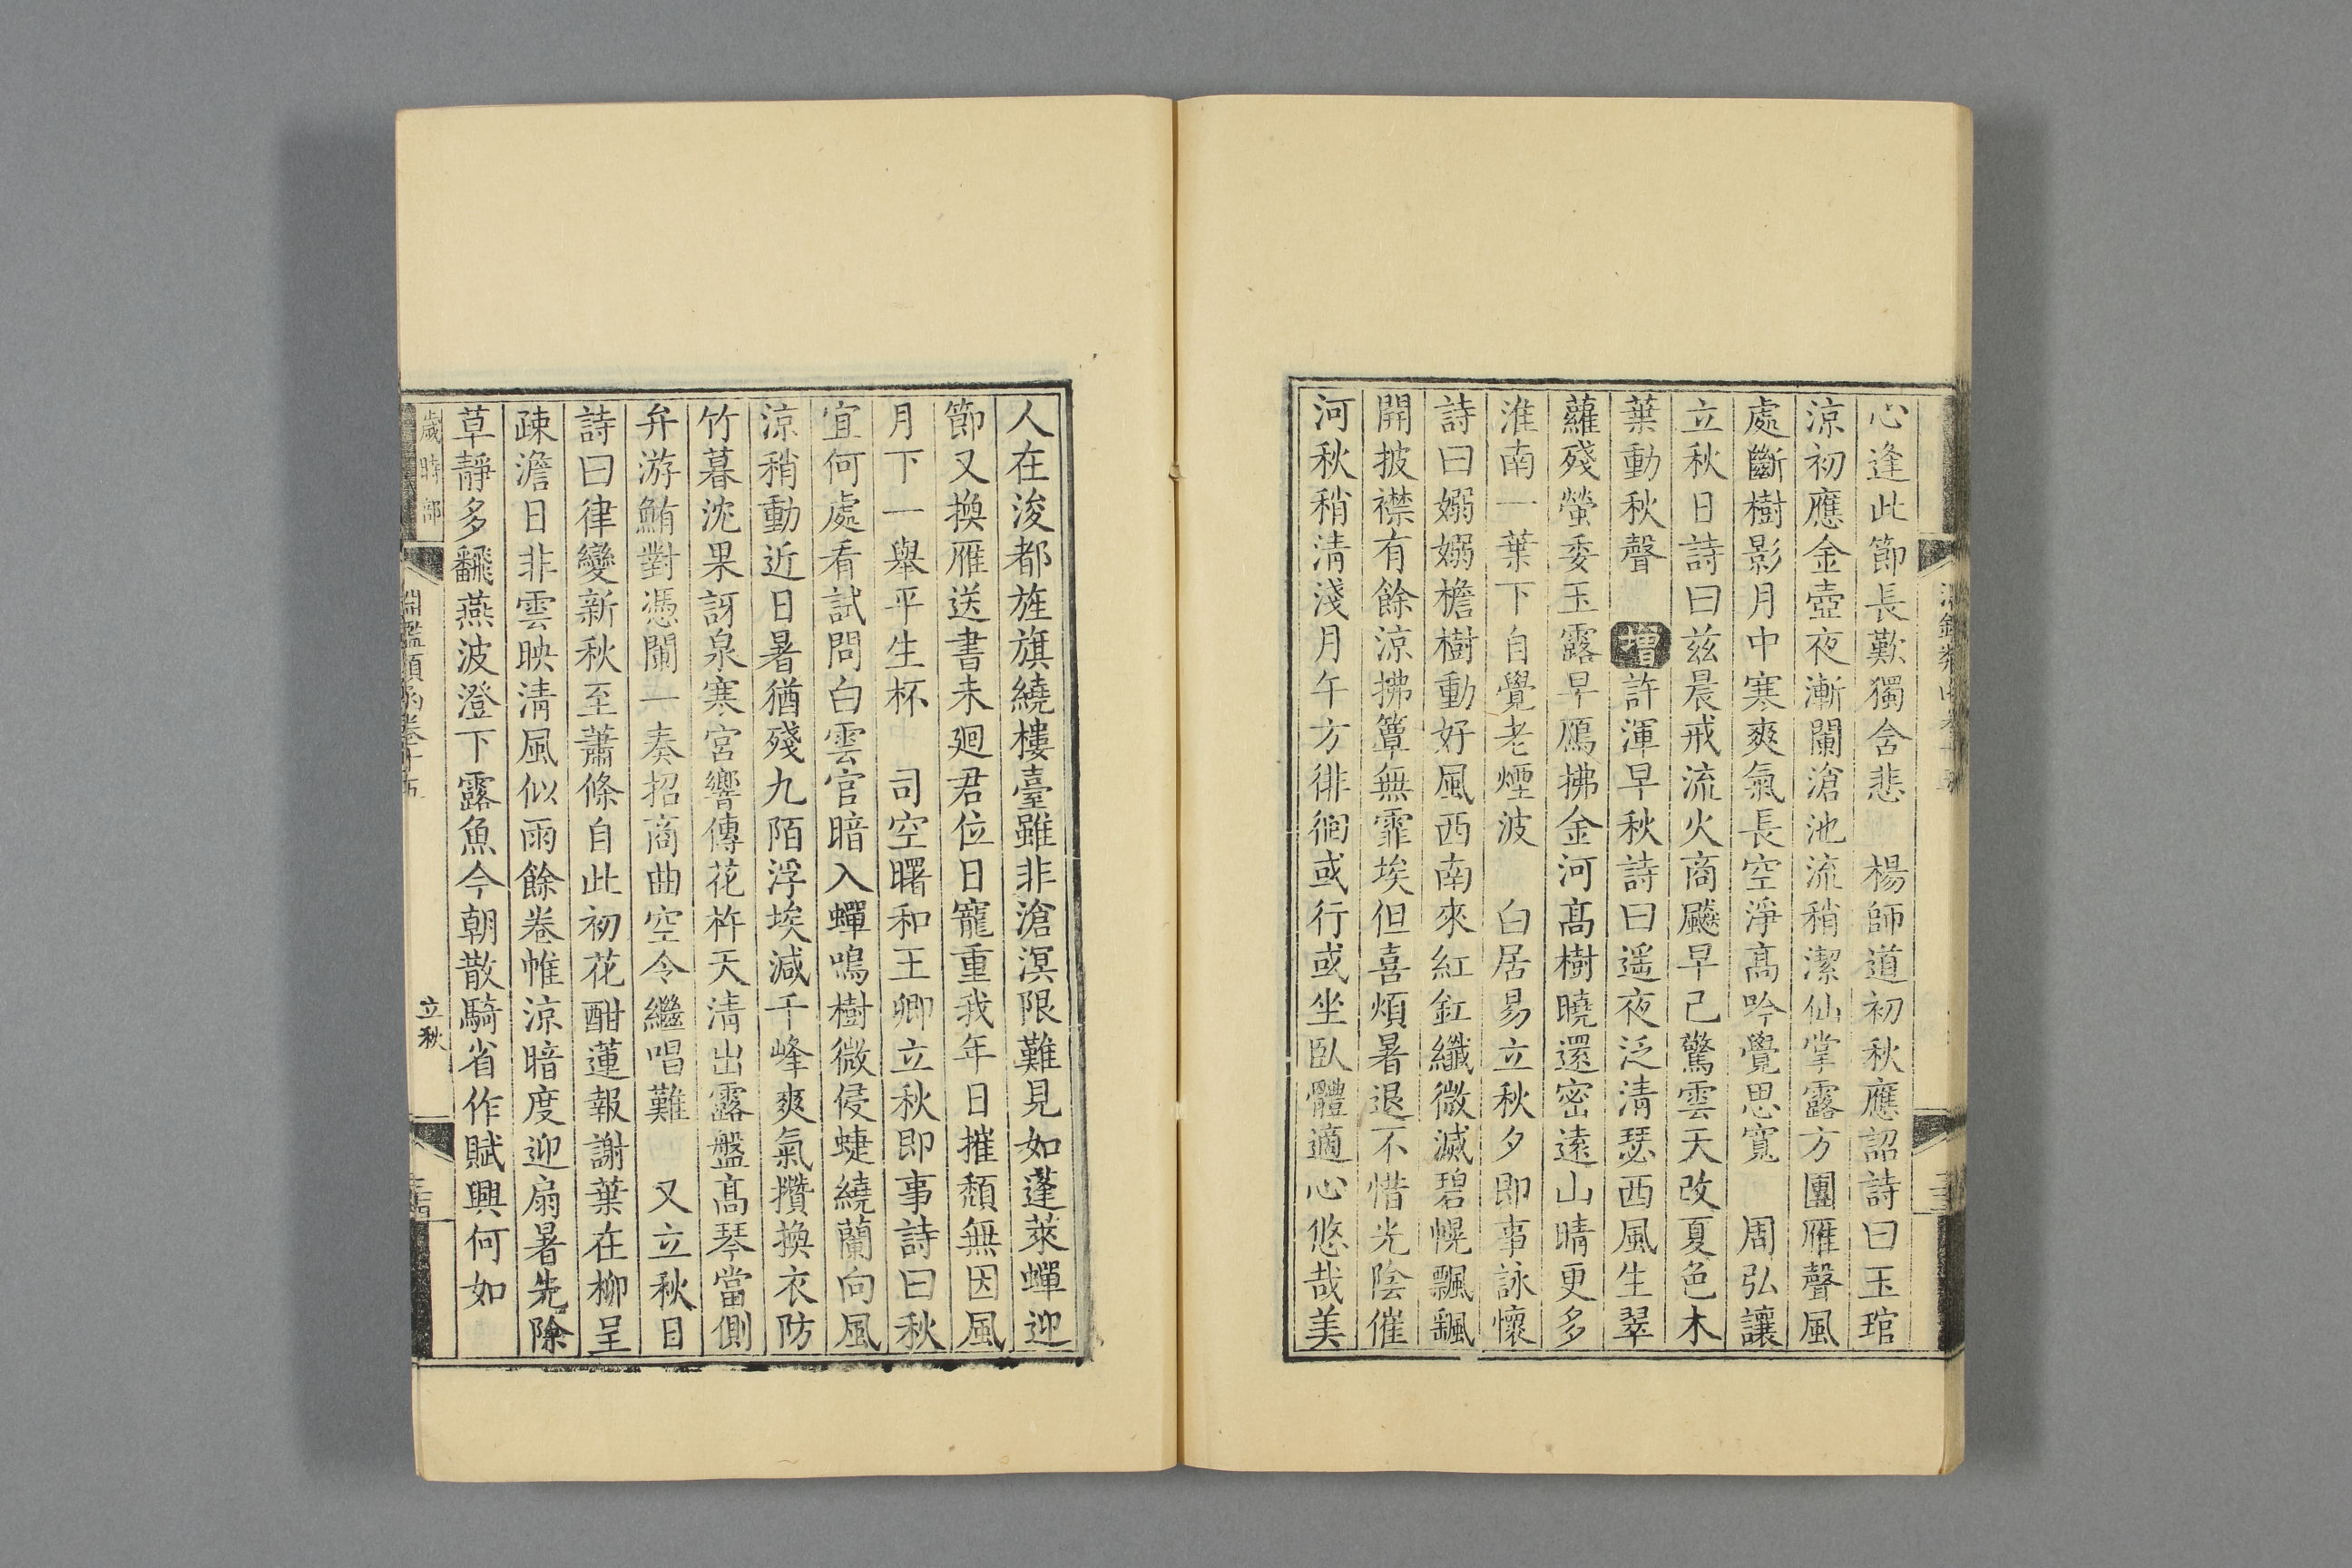 心逢此節長歎獨含悲 楊師道初秋應詔詩曰玉琯
涼初應金壺夜漸闌滄池流稍潔仙掌露方團雁聲風
處斷樹影月中寒爽氣長空淨高吟覺思寬 周弘讓
立秋日詩曰兹晨戒流火商飇早已驚雲天改夏色木
葉動秋聲 增許渾早秋詩曰遥夜泛清瑟西風生翠
蘿殘螢委玉露早鴈拂金河髙樹曉還密遠山晴更多
淮南一葉下自覺老煙波 白居易立秋夕即事詠懷
詩曰嫋嫋檐樹動好風西南來紅釭纖微滅碧幌飄飄
開披襟有餘涼拂簟無霏埃但喜煩暑退不惜光陰催
河秋稍清淺月午方徘徊或行或坐臥體適心悠哉美
人在浚都旌旗繞樓臺雖非滄溟限難見如蓬萊蟬迎
節又換雁送書未廻君位日寵重我年日摧頽無因風
月下一舉平生杯 司空曙和王卿立秋即事詩曰秋
宜何處看試問白雲官暗入蟬鳴樹微侵蜨繞蘭向風
涼稍動近日暑猶殘九陌浮埃減千峰爽氣攢換衣防
竹暮沈果訝泉寒宮響傳花杵天清出露盤髙琴當側
弁游鮪對憑闌一奏招商曲空令繼唱難 又立秋日
詩曰律變新秋至蕭條自此初花酣蓮報謝葉在柳呈
疎澹日非雲映清風似雨餘卷帷涼暗度迎扇暑先除
草靜多飜燕波澄下露魚今朝散騎省作賦興何如
歲時部
淵鑑類函卷十五
立秋